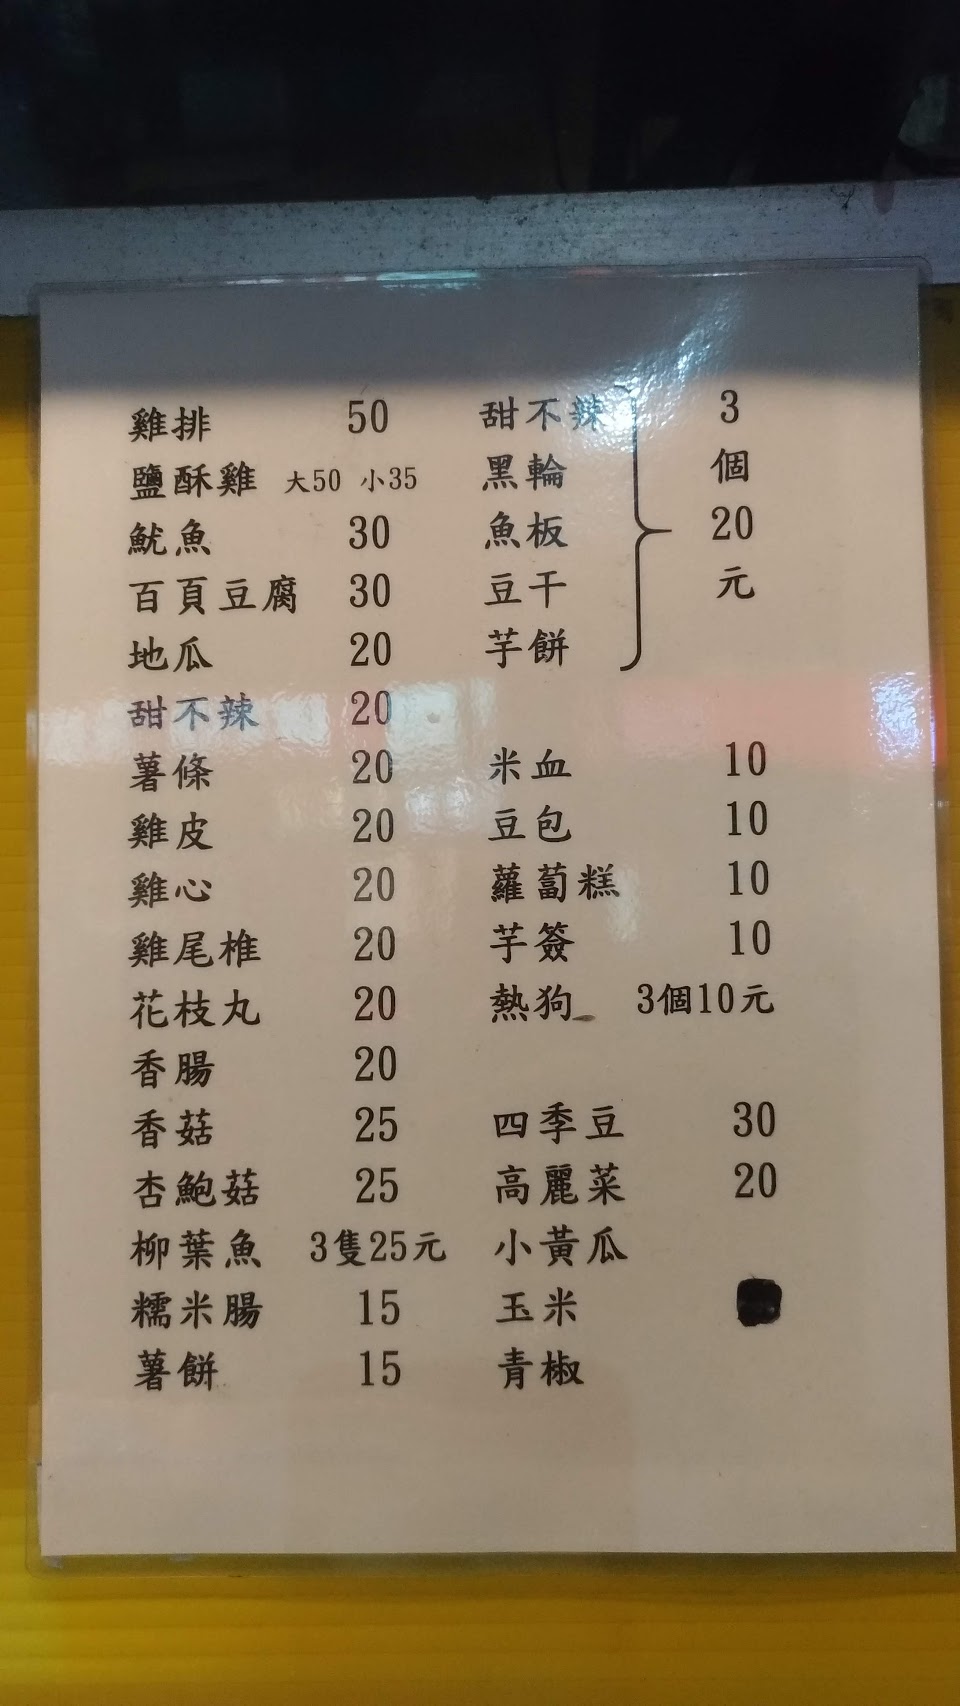 雞排 50
鹽酥雞 大50 小35
魷魚 30
百頁豆腐 30
地瓜 20
甜不辣 20
薯條 20
雞皮 20
雞心 20
雞尾椎 20
花枝丸 20
香腸 20
香菇 25
杏鮑菇 25
柳葉魚 3隻25元
糯米腸 15
薯餅 15
甜不辣
黑輪
魚板
豆干
芋餅
3
個
20
元
米血 10
豆包 10
蘿蔔糕 10
芋簽 10
熱狗 3個10元
四季豆 30
高麗菜 20
小黃瓜
玉米
青椒